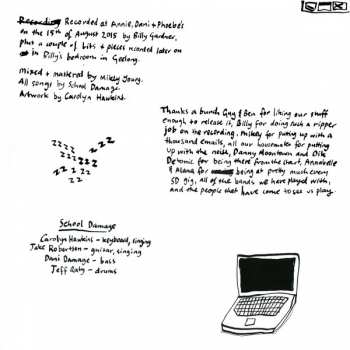 Recorded at Annie, Dani + Phoebe's
on the 15th of August 2015 by Billy Gardner,
plus a couple of bits + pieces recorded later on
in Billy's bedroom in Geelong.
Mixed + mastered by Mikey Young.
All songs by School Damage.
Artwork by Carolyn Hawkins.
Thanks a bunch Guy & Ben for liking our stuff
enough to release it, Billy for doing such a ripper
job on the recording, Mikey for putting up with a
thousand emails, all our housemates for putting
up with the noise, Danny Moontown and Oily
Detonic for being there from the start, Annabelle
& Alana for being at pretty much every
SD gig, all of the bands we have played with,
and the people that have come to see us play.
zzzz
zzzz
zzz
zzz
zz zz
zz
School Damage
Carolyn Hawkins - keyboard, singing
Jake Robertson - guitar, singing
Dani Damage - bass
Jeff Raty - drums